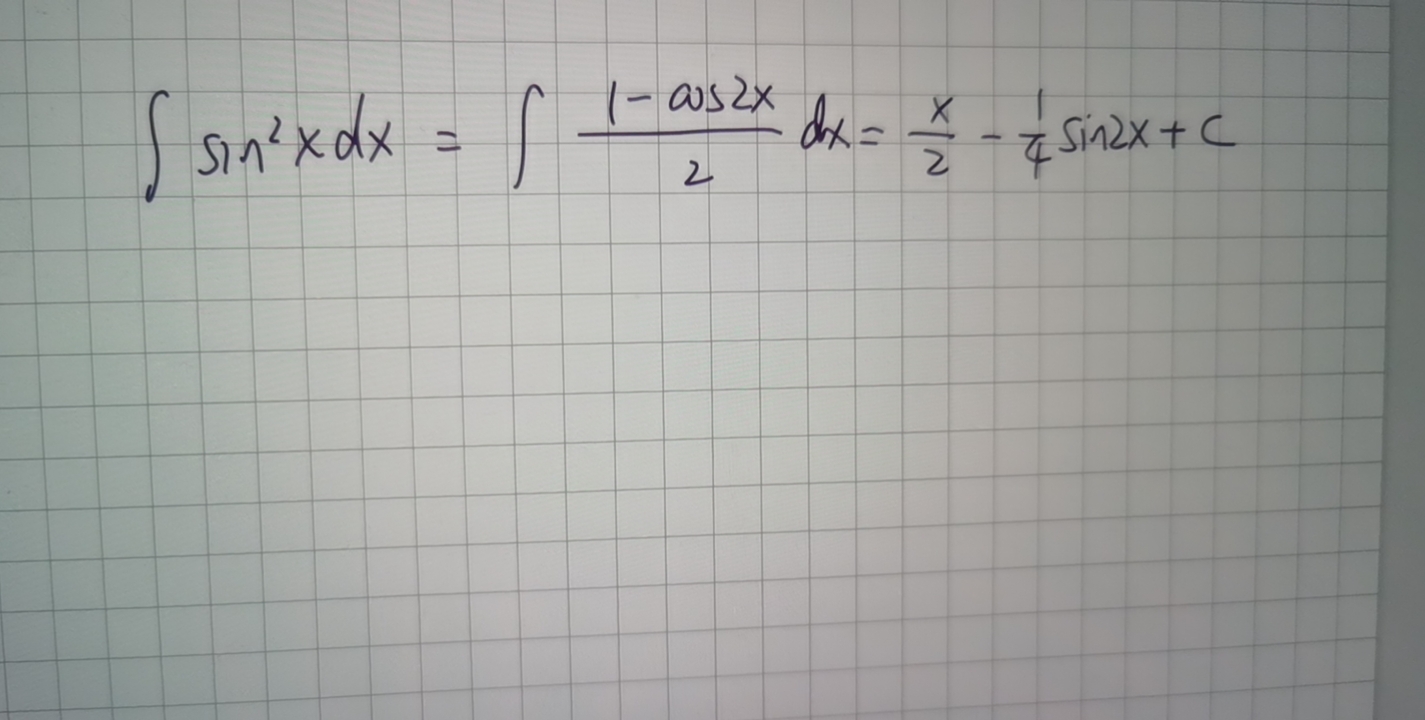 ∫ sin²x dx = ∫ (1 - cos2x)/2 dx = x/2 - 1/4 sin2x + C